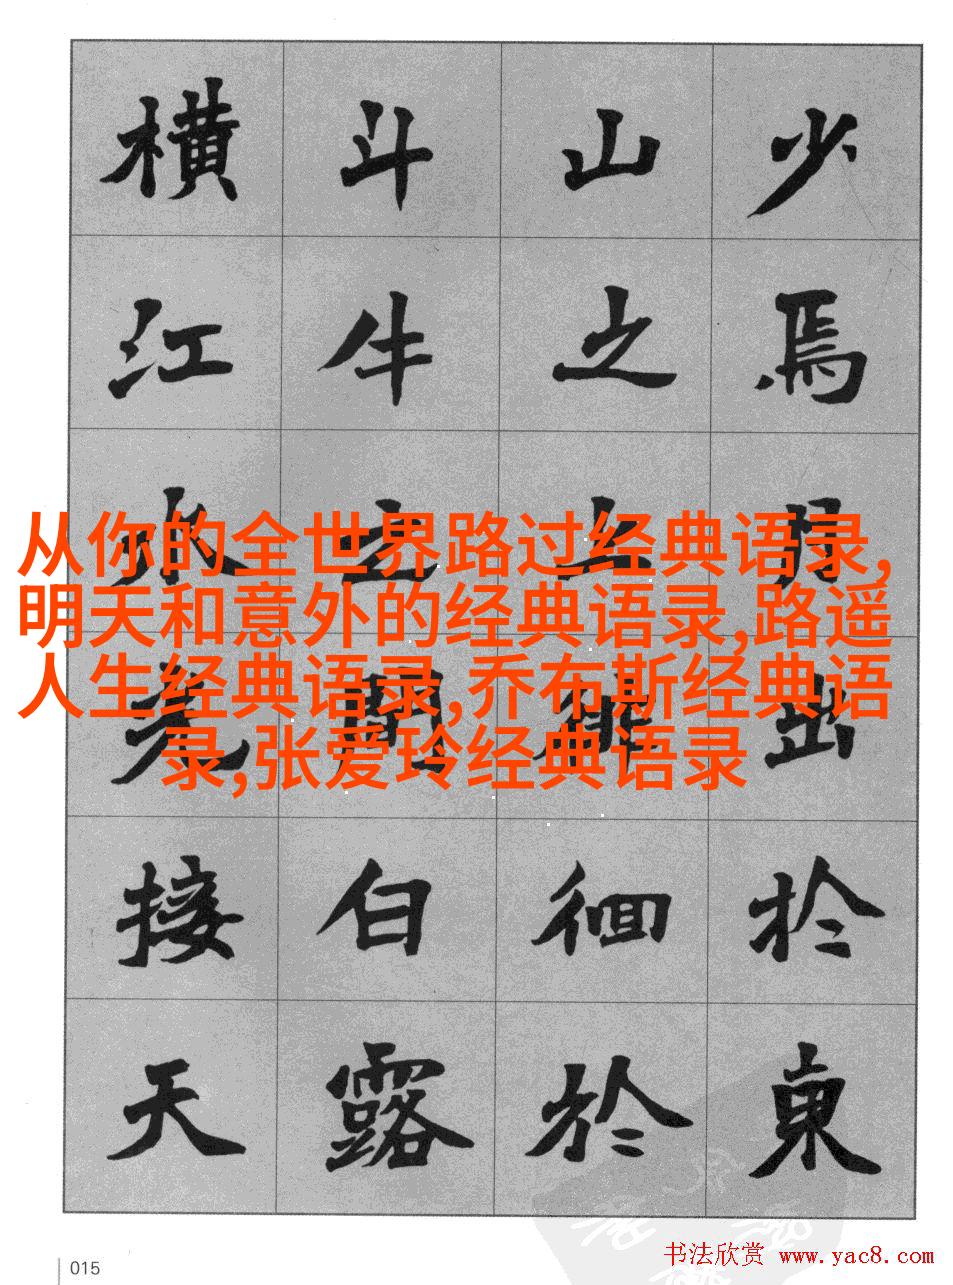 少焉月出於東
山之上徘徊於
斗牛之間白露
横江水光接天
从你的全世界路过经典语录,
明天和意外的经典语录,路遥
人生经典语录,乔布斯经典语
录,张爱玲经典语录
015
书法欣赏 www.yac8.com